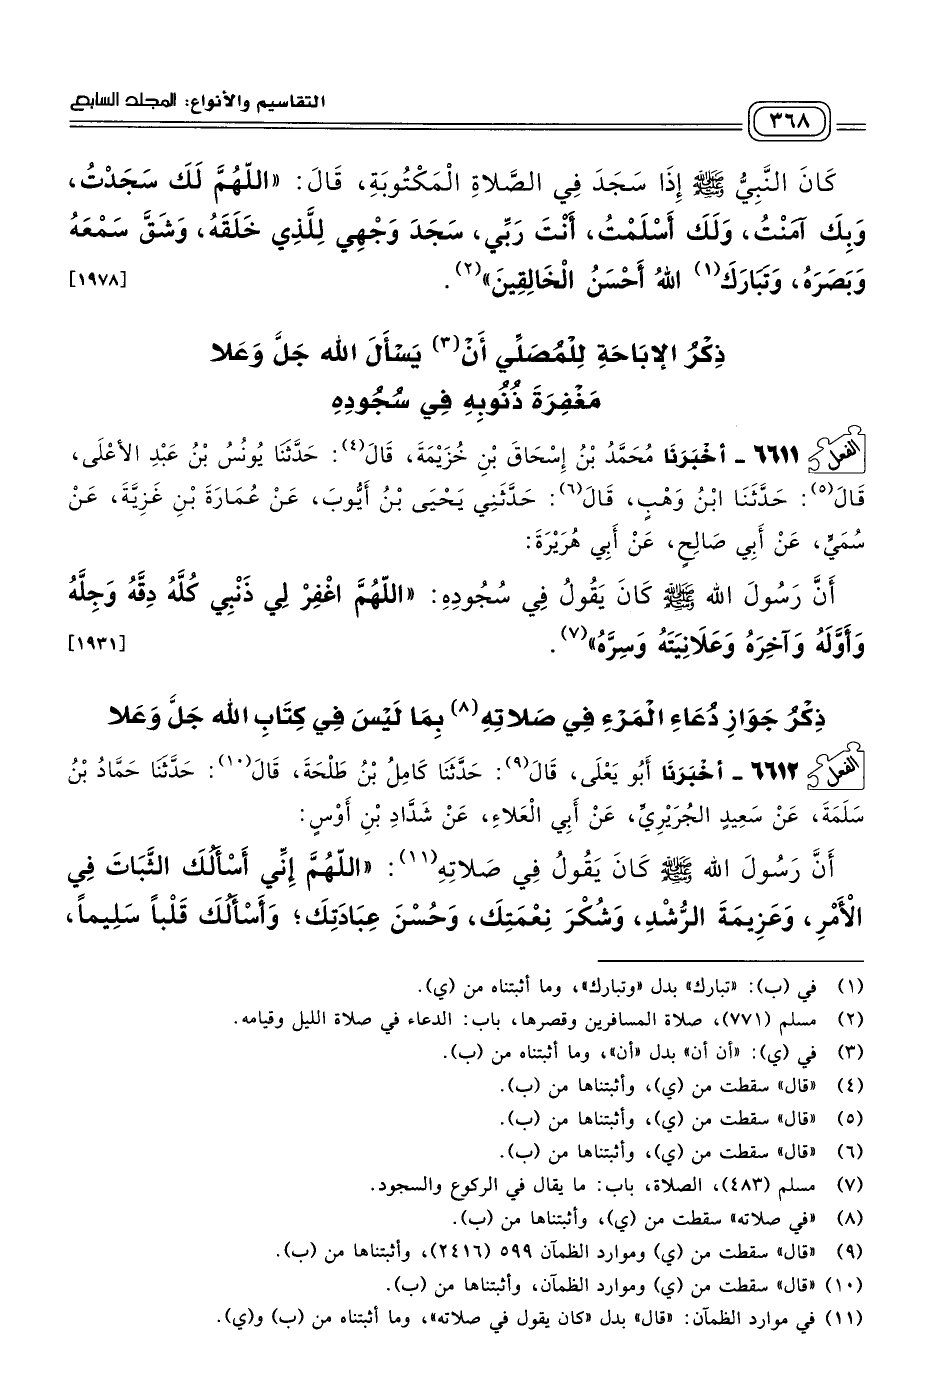 التقاسيم والأنواع: المجلد السابع
٣٦٨
كَانَ النَّبِيُّ ﷺ إِذَا سَجَدَ فِي الصَّلَاةِ الْمَكْتُوبَةِ، قَالَ: «اللّهُمَّ لَكَ سَجَدْتُ،
وَبِكَ آمَنْتُ، وَلَكَ أَسْلَمْتُ، أَنْتَ رَبِّي، سَجَدَ وَجْهِي لِلَّذِي خَلَقَهُ، وَشَقَّ سَمْعَهُ
وَبَصَرَهُ، وَتَبَارَكَ(١) اللهُ أَحْسَنُ الْخَالِقِينَ»(٢). [١٩٧٨]
ذِكْرُ الإِبَاحَةِ لِلْمُصَلِّي أَنْ(٣) يَسْأَلَ الله جَلَّ وَعَلا
مَغْفِرَةَ ذُنُوبِهِ فِي سُجُودِهِ
الفعل ٦٦١١ ـ أخْبَرنَا مُحَمَّدُ بْنُ إِسْحَاقَ بْنِ خُزَيْمَةَ، قَالَ(٤): حَدَّثَنَا يُونُسُ بْنُ عَبْدِ الأعْلَى،
قَالَ(٥): حَدَّثَنَا ابْنُ وَهْبٍ، قَالَ(٦): حَدَّثَنِي يَحْيَى بْنُ أَيُّوبَ، عَنْ عُمَارَةَ بْنِ غَزِيَّةَ، عَنْ
سُمَيٍّ، عَنْ أَبِي صَالِحٍ، عَنْ أَبِي هُرَيْرَةَ:
أَنَّ رَسُولَ الله ﷺ كَانَ يَقُولُ فِي سُجُودِهِ: «اللّهُمَّ اغْفِرْ لِي ذَنْبِي كُلَّهُ دِقَّهُ وَجِلَّهُ
وَأَوَّلَهُ وَآخِرَهُ وَعَلَانِيَتَهُ وَسِرَّهُ»(٧). [١٩٣١]
ذِكْرُ جَوَازِ دُعَاءِ الْمَرْءِ فِي صَلاتِهِ(٨) بِمَا لَيْسَ فِي كِتَابِ الله جَلَّ وَعَلا
الفعل ٦٦١٢ ـ أخْبَرَنَا أَبُو يَعْلَى، قَالَ(٩): حَدَّثَنَا كَامِلُ بْنُ طَلْحَةَ، قَالَ(١٠): حَدَّثَنَا حَمَّادُ بْنُ
سَلَمَةَ، عَنْ سَعِيدٍ الجُرَيْرِيِّ، عَنْ أَبِي الْعَلاءِ، عَنْ شَدَّادِ بْنِ أَوْسٍ:
أَنَّ رَسُولَ الله ﷺ كَانَ يَقُولُ فِي صَلاتِهِ(١١): «اللّهُمَّ إِنِّي أَسْأَلُكَ الثَّبَاتَ فِي
الْأَمْرِ، وَعَزِيمَةَ الرُّشْدِ، وَشُكْرَ نِعْمَتِكَ، وَحُسْنَ عِبَادَتِكَ؛ وَأَسْأَلُكَ قَلْباً سَلِيماً،
(١) في (ب): «تبارك» بدل «وتبارك»، وما أثبتناه من (ي).
(٢) مسلم (٧٧١)، صلاة المسافرين وقصرها، باب: الدعاء في صلاة الليل وقيامه.
(٣) في (ي): «أن أن» بدل «أن»، وما أثبتناه من (ب).
(٤) «قال» سقطت من (ي)، وأثبتناها من (ب).
(٥) «قال» سقطت من (ي)، وأثبتناها من (ب).
(٦) «قال» سقطت من (ي)، وأثبتناها من (ب).
(٧) مسلم (٤٨٣)، الصلاة، باب: ما يقال في الركوع والسجود.
(٨) «في صلاته» سقطت من (ي)، وأثبتناها من (ب).
(٩) «قال» سقطت من (ي) وموارد الظمآن ٥٩٩ (٢٤١٦)، وأثبتناها من (ب).
(١٠) «قال» سقطت من (ي) وموارد الظمآن، وأثبتناها من (ب).
(١١) في موارد الظمآن: «قال» بدل «كان يقول في صلاته»، وما أثبتناه من (ب) و(ي).